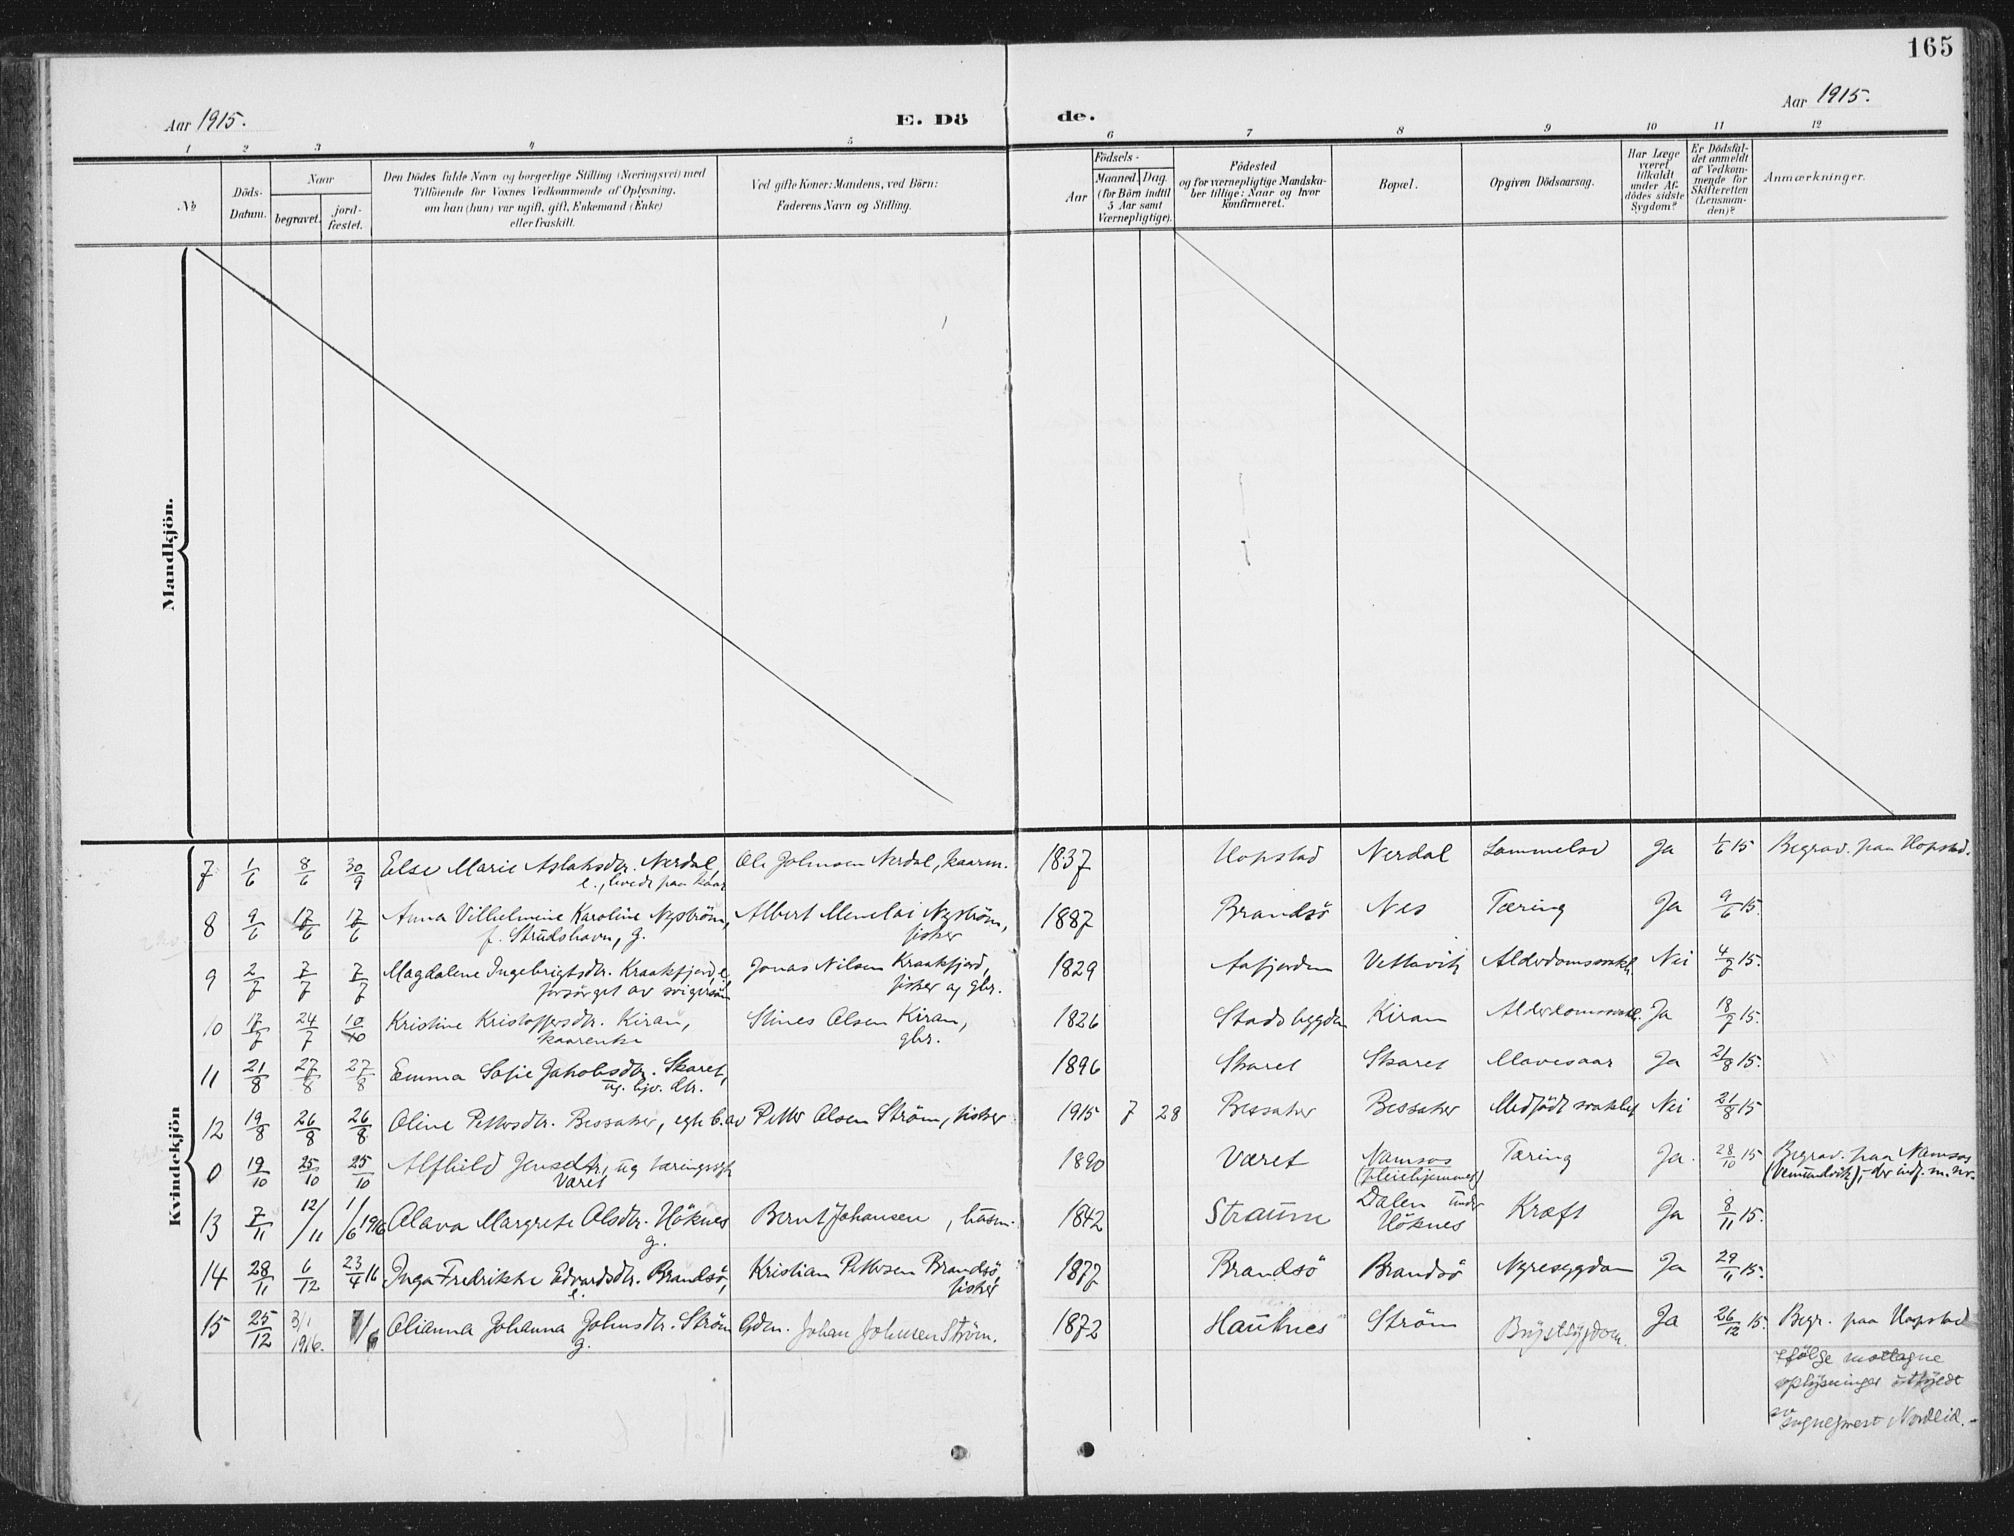 165
Aar 1915.
E. Dö de.
Aar 1915.
1 2 3 4 5 6 7 8 9 10 11 12
№
Döds-
Datum.
Naar
begravet.
jord-
fæstet.
Den Dödes fulde Navn og borgerlige Stilling (Næringsvei) med
Tilföiende for Voxnes Vedkommende af Oplysning,
om han (hun) var ugift, gift, Enkemand (Enke)
eller fraskilt.
Ved gifte Koner: Mandens, ved Börn:
Faderens Navn og Stilling.
Födsels-
Aar
Maaned. Dag.
(for Börn indtil
5 Aar samt
Værnepligtige).
Födested
og for værnepligtige Mandska-
ber tillige: Naar og hvor
konfirmeret.
Bopæl.
Opgiven Dödsaarsag.
Har Læge
været
tilkaldt
under Af-
dödes sidste
Sygdom?
Er Dödsfal-
det anmeldt
af Vedkom-
mende for
Skifteretten
(Lensman-
den)?
Anmærkninger.
Mandkjön.
Kvindekjön
7 1/6 8/6 30/9 Else Marie Aslaksdtr. Nerdal, Ole Johnsen Nerdal, kaarm. 1837 Hopstad Nerdal Lammelse Ja 1/6 15 Begrav. paa Hopstad.
e., levede paa kaar
8 9/6 17/6 17/6 Anna Vilhelmine Karoline Nyström, Albert Menelai Nyström, 1887 Brandsö Nes Tæring Ja 9/6 15.
f. Strudshavn, g. fisker
9 2/7 7/7 7/7 Magdalene Ingebrigtsdtr. Kraakfjord, e. Jonas Nilsen Kraakfjord, 1829 Aafjorden Vettavik Alderdomssvakh. Nei 4/7 15.
forsörget av svigersön fisker og gbr.
10 17/7 24/7 10/10 Kristine Kristoffersdtr. Kiran, Stines Olsen Kiran, 1826 Stadsbygden Kiran Alderdomssvakh. Ja 18/7 15.
kaarenke gbr.
11 21/8 27/8 27/8 Emma Sofie Jakobsdtr. Skaret, 1896 Skaret Skaret Mavesaar Ja 21/8 15.
ug. hjv. dtr.
12 19/8 26/8 26/8 Oline Pettersdtr. Bessaker, egte b. av Petter Olsen Ström, fisker 1915 7 28 Bessaker Bessaker Medfödt svakhet Nei 21/8 15
0 19/10 25/10 25/10 Alfhild Jensdtr., ug næringsvei 1890 Været Namsos Tæring Ja. 28/10 15 Begrav. paa Namsos
Været (pleiehjemmet) (Vemundvik), der indf. m. nr.
13 7/11 12/11 1/6 1916 Olava Margrete Olsdtr. Höknes Bernt Johansen, husm. 1842 Straum Dalen under Kræft Ja 8/11 15.
g. Höknes
14 28/11 6/12 23/4 16 Inga Fredrikke Edvardsdtr. Brandsö, Kristian Pettersen Brandsö, 1877 Brandsö Brandsö Nyresygdom Ja 29/11 15.
e. fisker
15 25/12 3/1 1916. 1/6 Olianna Johanna Johnsdtr. Ström Gdm. Johan Johnsen Ström. 1872 Hauknes Ström Brystsygdom. Ja 26/12 15. Begr. paa Hopstad
g.
ifölge mottagne
oplysninger utfyldt
av sogneprest Nordeid.